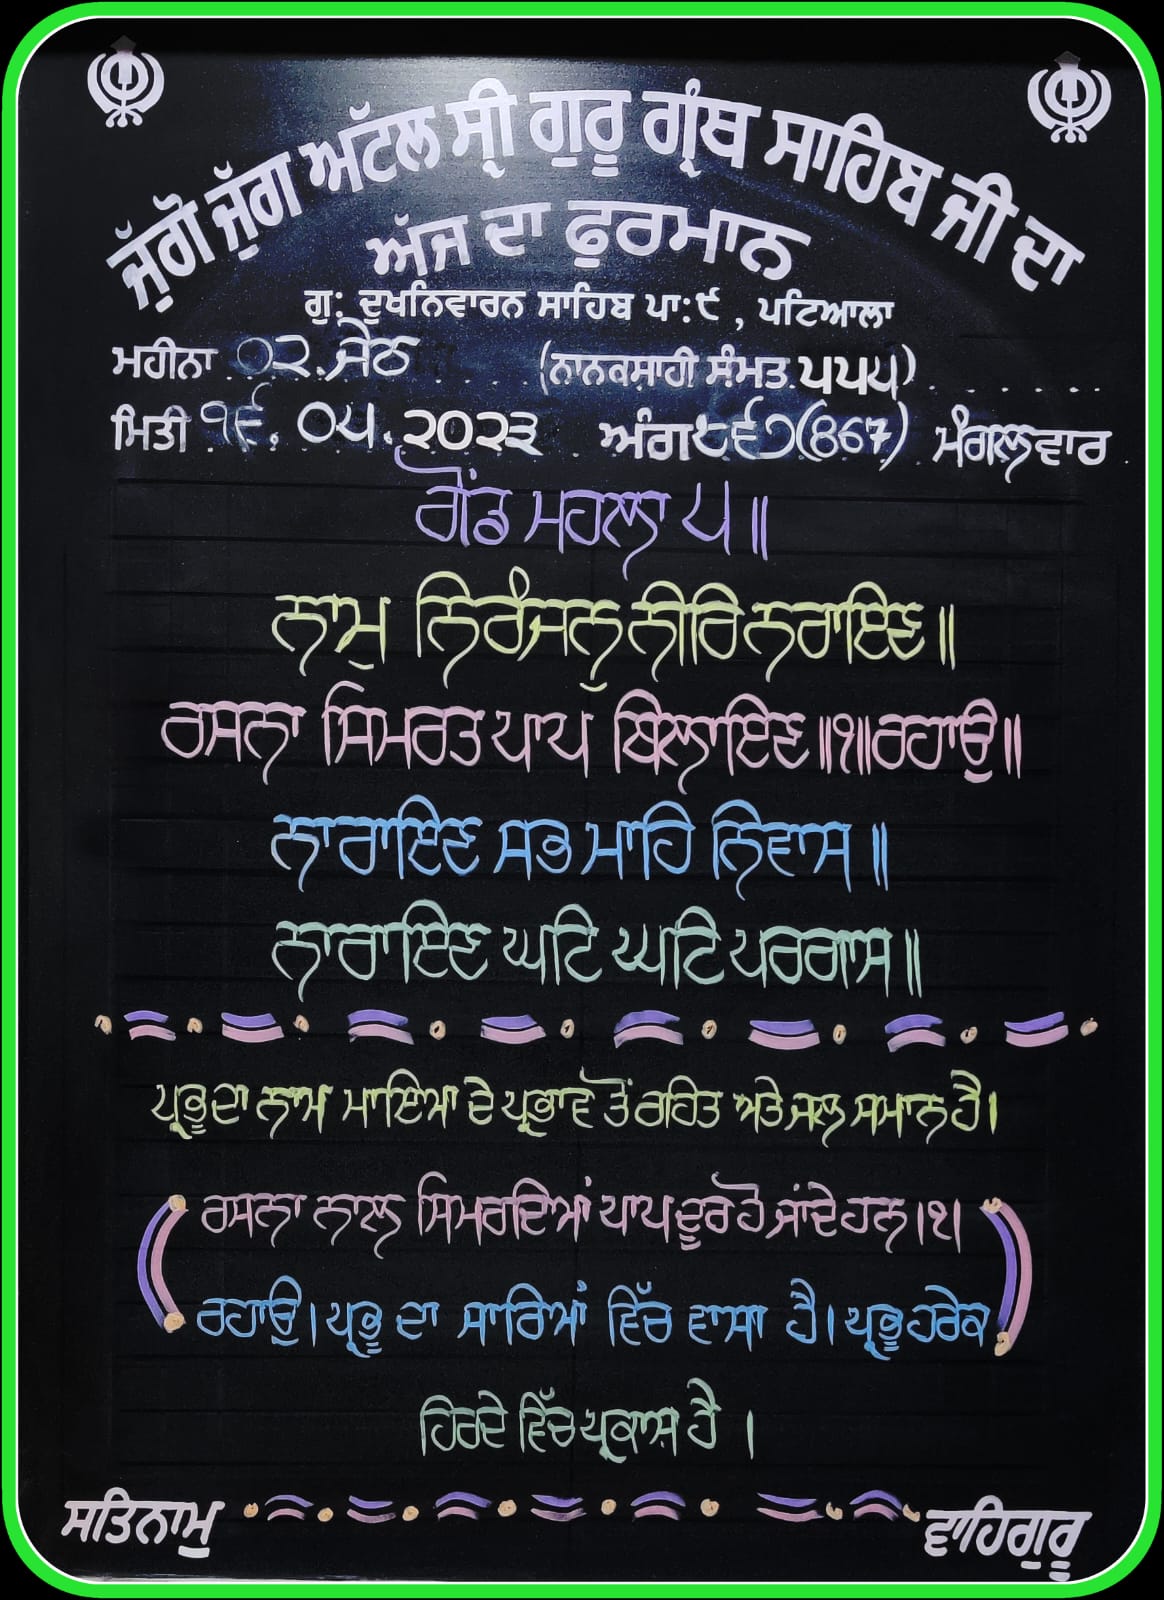 ਜੁੱਗੋ ਜੁੱਗ ਅੱਟਲ ਸ੍ਰੀ ਗੁਰੂ ਗ੍ਰੰਥ ਸਾਹਿਬ ਜੀ ਦਾ
ਅੱਜ ਦਾ ਫੁਰਮਾਨ
ਗੁ: ਦੁਖਨਿਵਾਰਨ ਸਾਹਿਬ ਪਾ:੯, ਪਟਿਆਲਾ
ਮਹੀਨਾ ੦੨.ਜੇਠ (ਨਾਨਕਸ਼ਾਹੀ ਸੰਮਤ ੫੫੫)
ਮਿਤੀ ੧੬.੦੫.੨੦੨੩ ਅੰਗ ੮੬੭(867) ਮੰਗਲਵਾਰ
ਗੋਂਡ ਮਹਲਾ ੫॥
ਨਾਮੁ ਨਿਰੰਜਨੁ ਨੀਰਿ ਨਰਾਇਣ॥
ਰਸਨਾ ਸਿਮਰਤ ਪਾਪ ਬਿਲਾਇਣ॥੧॥ਰਹਾਉ॥
ਨਾਰਾਇਣ ਸਭ ਮਾਹਿ ਨਿਵਾਸ॥
ਨਾਰਾਇਣ ਘਟਿ ਘਟਿ ਪਰਗਾਸ॥
ਪ੍ਰਭੂ ਦਾ ਨਾਮ ਮਾਇਆ ਦੇ ਪ੍ਰਭਾਵ ਤੋਂ ਰਹਿਤ ਅਤੇ ਜਲ ਸਮਾਨ ਹੈ।
ਰਸਨਾ ਨਾਲ ਸਿਮਰਦਿਆਂ ਪਾਪ ਦੂਰ ਹੋ ਜਾਂਦੇ ਹਨ।੧।
ਰਹਾਉ। ਪ੍ਰਭੂ ਦਾ ਸਾਰਿਆਂ ਵਿੱਚ ਵਾਸਾ ਹੈ। ਪ੍ਰਭੂ ਹਰੇਕ
ਹਿਰਦੇ ਵਿੱਚ ਪ੍ਰਕਾਸ਼ ਹੈ ।
ਸਤਿਨਾਮੁ ਵਾਹਿਗੁਰੂ